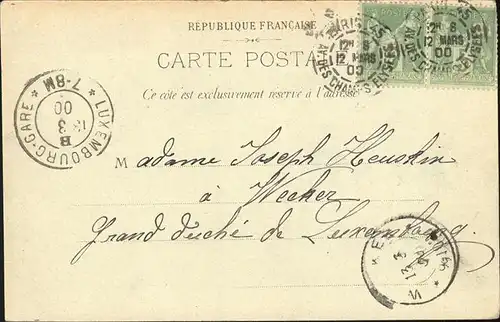 RÉPUBLIQUE FRANÇAISE
CARTE POSTA
Ce côté est exclusivement réservé à l'adresse
PARIS
AV. DES CHAMPS ELYSEES
12 MARS
00
12 MARS
00
LUXEMBOURG-GARE
7-8M
13 3
00
B
Madame Joseph Heuskin
à Wecker
Grand duché de Luxembourg.
13 3